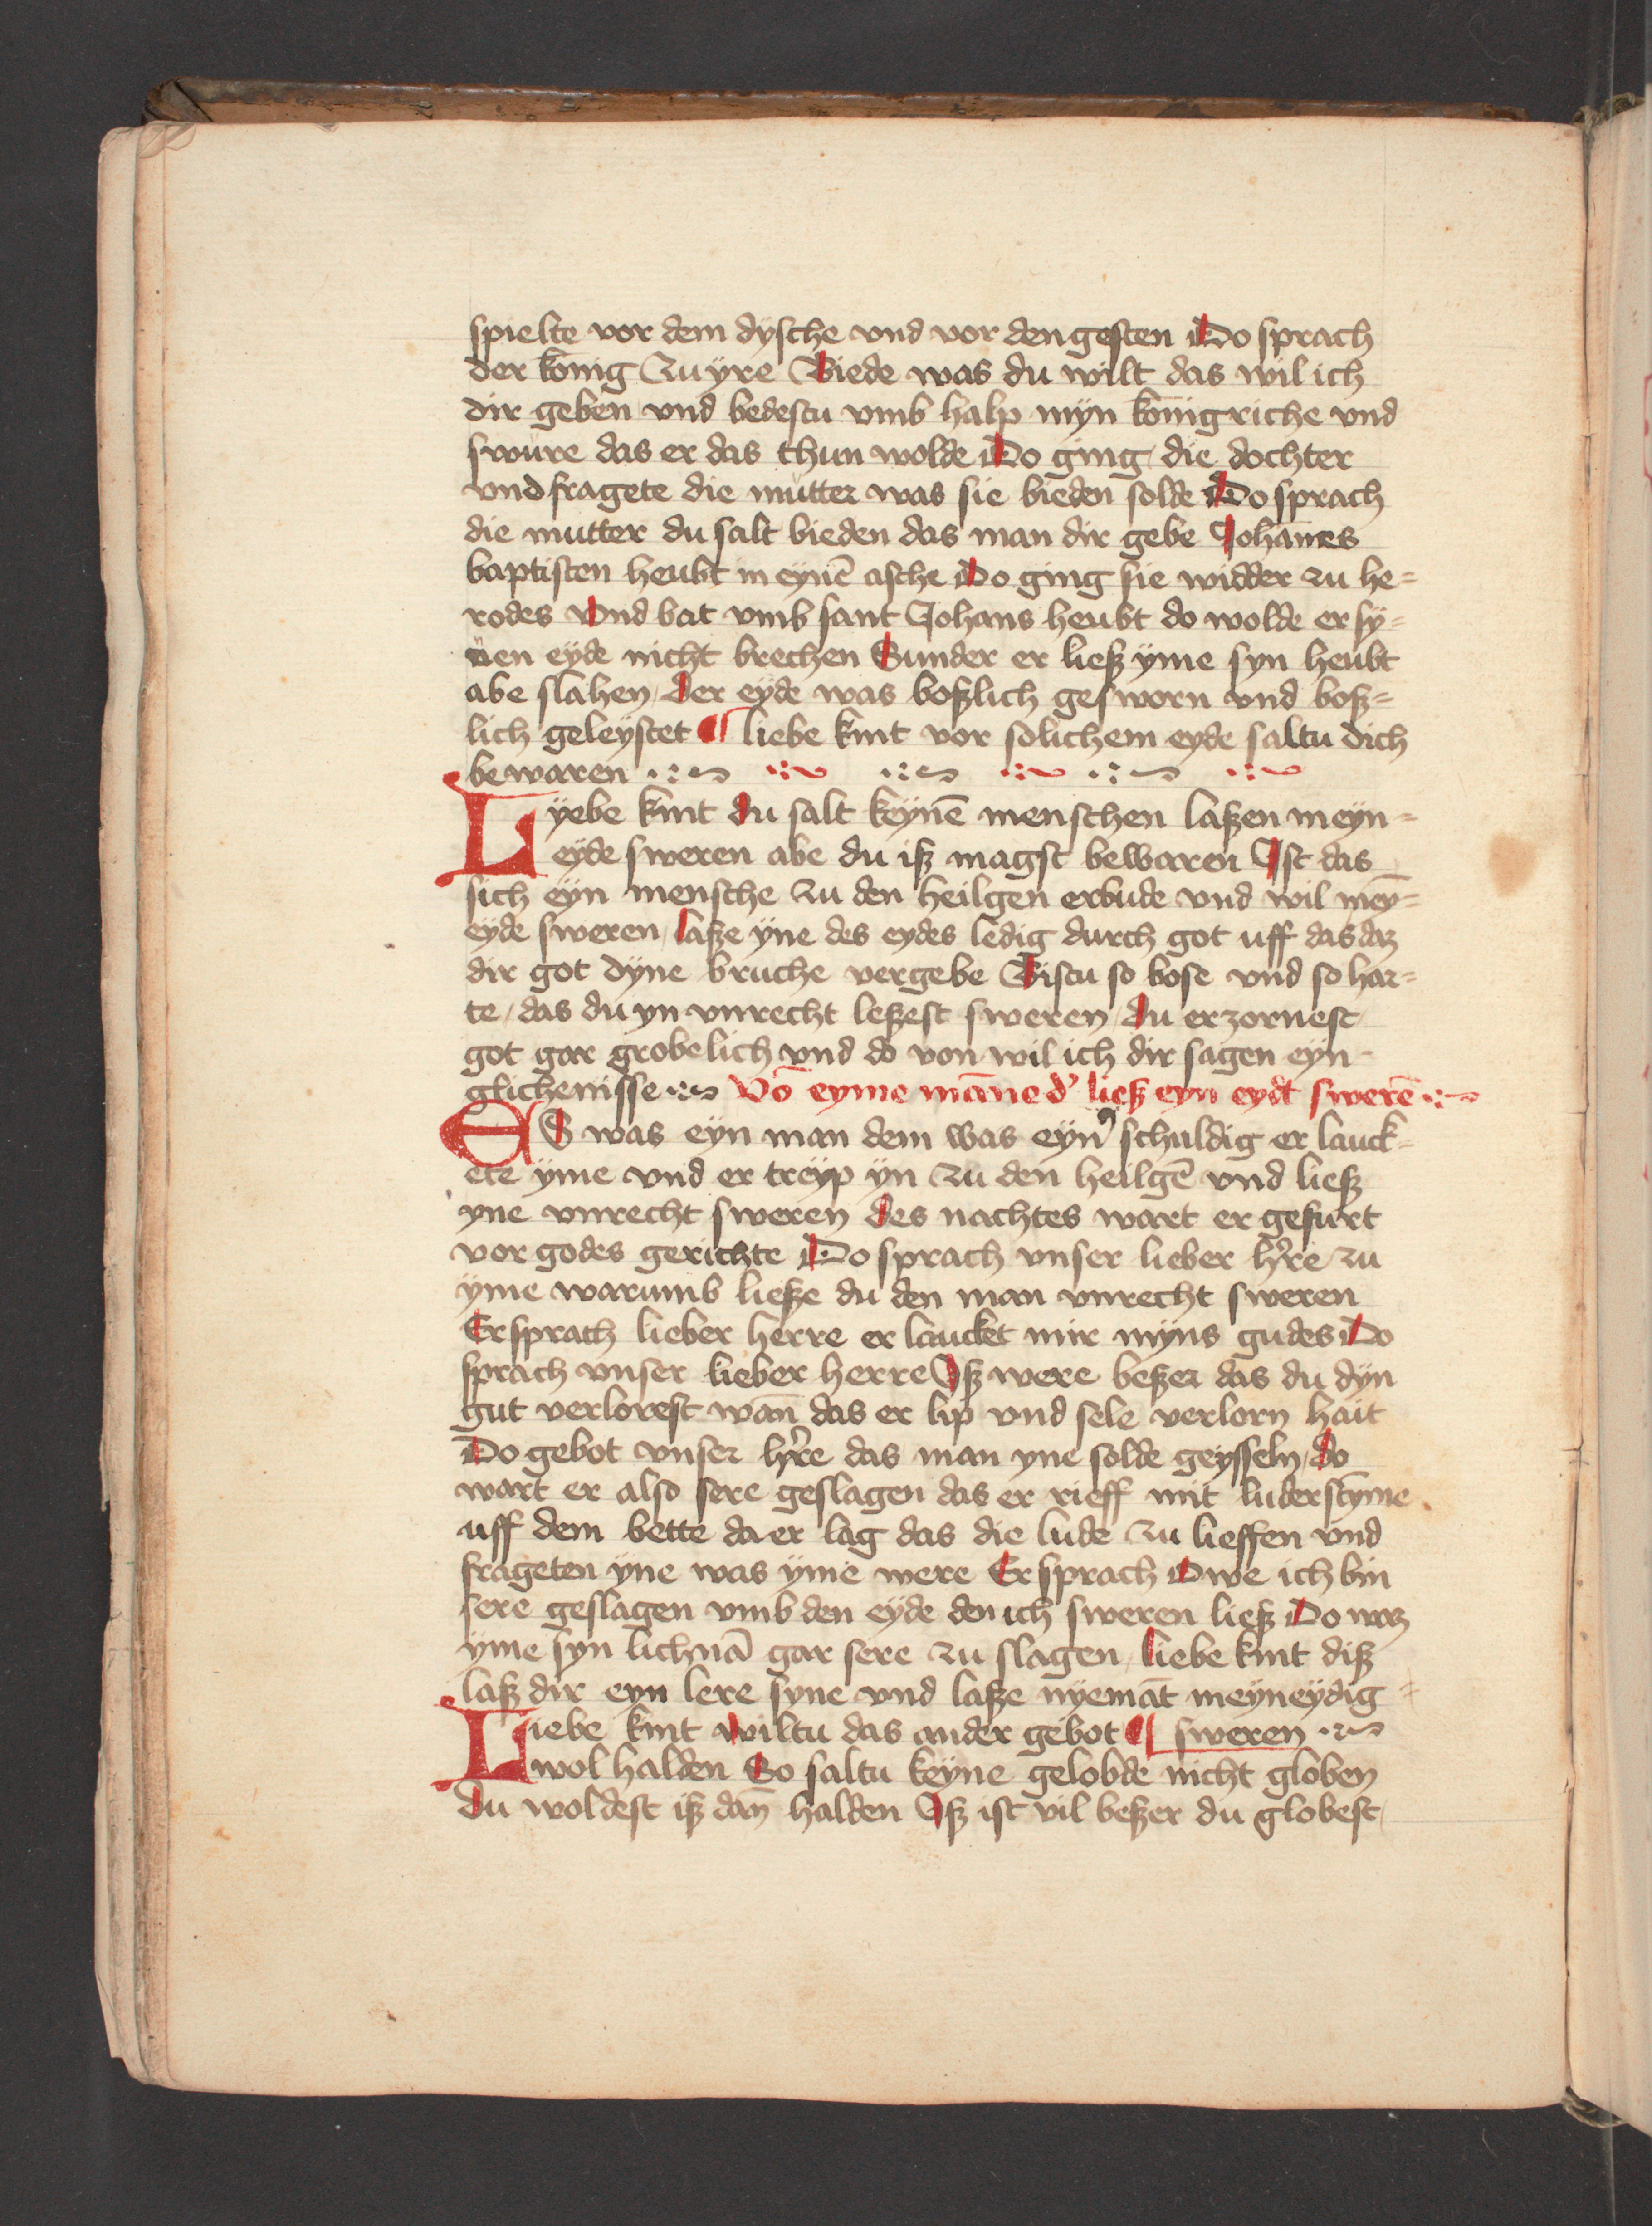 spielte vor dem dysche vnd vor den gesten Do sprach
der konig zu yre Biede was du wilt das wil ich
dir geben vnd bedestu vmb halp myn konigriche vnd
swure das er das thun wolde Do ging die dochter
vnd fragete die mutter was sie bieden solde Do sprach
die mutter du salt bieden das man dir gebe Johānes
baptisten heubt in eynē asche Do ging sie widder zu he=
rodes vnd bat vmb sant Johans heubt do wolde er sy=
nen eyde nicht brechen Sunder er liesz yme syn heubt
abe slahen der eyde was boszlich gesworn vnd bosz=
lich geleystet ¶ liebe kint vor solichem eyde saltu dich
bewaren
Lyebe kint du salt keynē menschen laszen meyn=
eyde sweren abe du isz magst bewaren Ist das
sich eyn mensche zu den heilgen erbude vnd wil mey̅=
eyde sweren lasze yne des eydes ledig durch got uff das daz
dir got dyne bruche vergebe Bistu so bose vnd so har=
te das du yn vnrecht leszest sweren du erzornest
got gar grobelich vnd do von wil ich dir sagen eyn
glichenisse Vō eyme māne d' liesz eyn eydt swerē
ES was eyn man dem was eyn' schuldig er lauck=
ete yme vnd er treyp yn zu den heilgē vnd liesz
yne vnrecht sweren des nachtes wart er gefurt
vor godes gerichte Do sprach vnser lieber h're zu
yme warumb liesze du den man vnrecht sweren
Er sprach lieber herre er laucket mir myns gudes Do
sprach vnser lieber herre Isz were beszer das du dyn
gut verlorest wan̄ das er lip vnd sele verlorn hait
Do gebot vnser h're das man yne solde geysseln do
wart er also sere geslagen das er rieff mit luder stym̄e
uff dem bette da er lag das die lude zu lieffen vnd
frageten yne was yme were Er sprach Owe ich bin
sere geslagen vmb den eyde den ich sweren liesz Do waz
yme syn lichnā gar sere zu slagen liebe kint disz
lasz dir eyn lere syne vnd lasze nyemāt meyneydig=
Liebe kint wiltu das ander gebot ¶ sweren
wol halden So saltu keyne gelobde nicht globen
du woldest isz dan̄ halden Isz ist vil beszer du globest